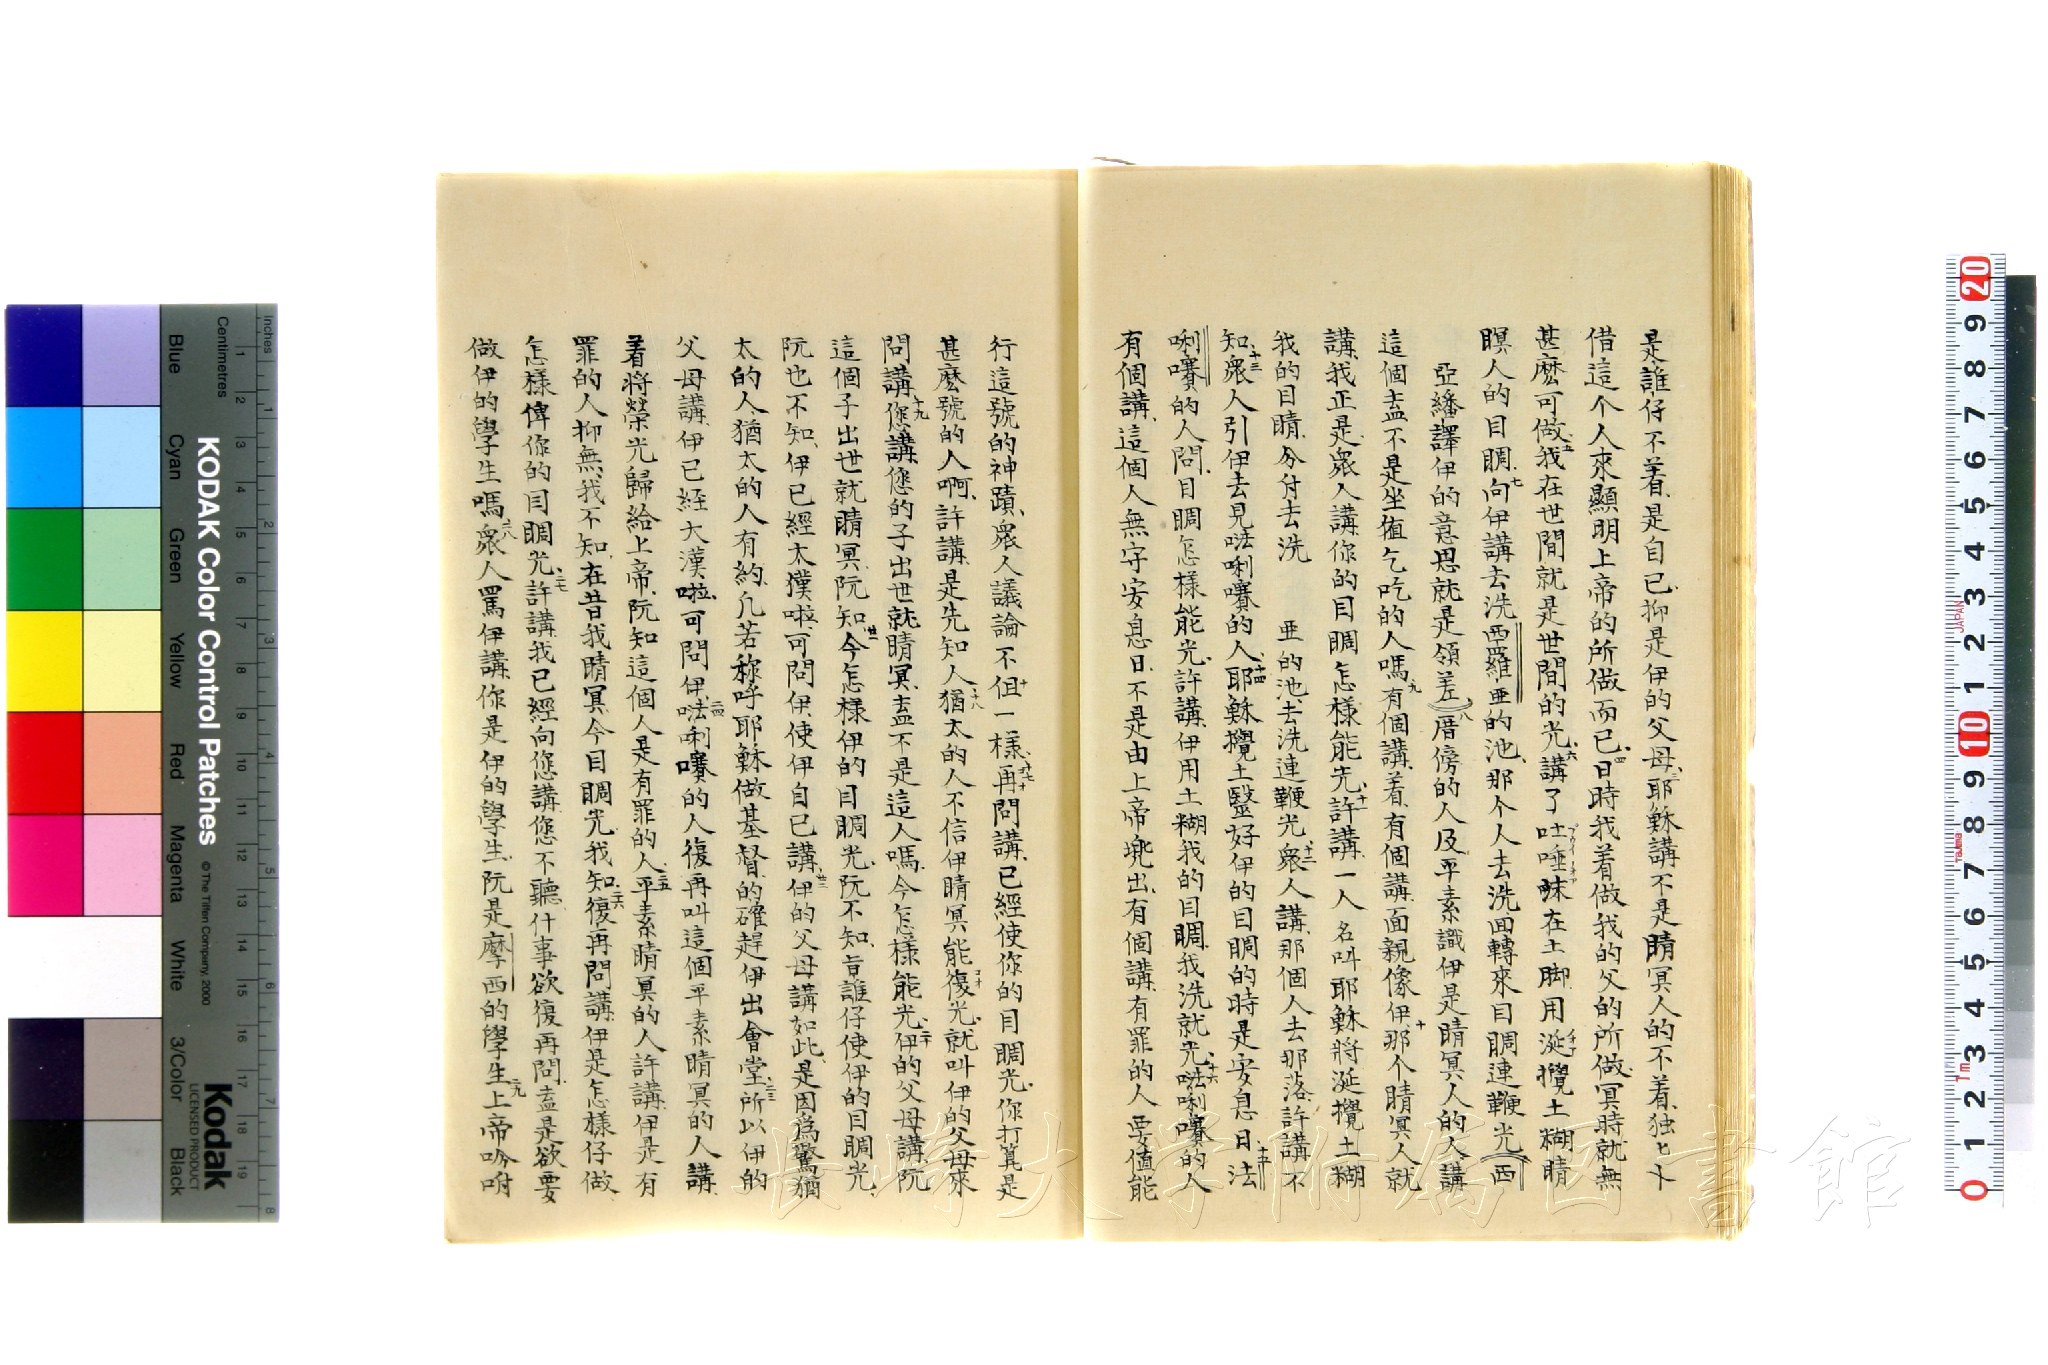 是誰仔不着是自己抑是伊的父母三耶穌講不是睛冥人的不着独
借這个人來顯明上帝的所做而已四日時我着做我的父的所做冥時就無
甚麼可做五我在世間就是世間的光六講了吐唾沫在土脚用涎攪土糊睛
瞑人的目睭七向伊講去洗西羅亜的池那个人去洗面轉來目睭連鞭光西
亞繙譯伊的意思就是領差八厝傍的人及平素識伊是睛冥人的人講
這個盍不是坐值乞吃的人嗎九有個講着有個講面親像伊十那个睛冥人就
講我正是衆人講你的目睭怎樣能光十一許講一人名叫耶穌將涎攪土糊
我的目睛分付去洗 亜的池去洗連鞭光十二衆人講那個人去那落許講不
知十三衆人引伊去見𠵽唎㘔的人十四耶穌攪土醫好伊的目睭的時是安息日十五法
唎㘔的人問目睭怎樣能光許講伊用土糊我的目睭我洗就光十六𠵽唎㘔的人
有個講這個人無守安息日不是由上帝\u3000出有個講有罪的人要值能
行這號的神蹟衆人議論不但一樣十七再問講已經使你的目睭光你打算是
甚麼號的人啊許講是先知人十八猶太的人不信伊睛冥能復光就叫伊的父母來
問講十九您講您的子出世就睛冥盍不是這人嗎今怎樣能光二十伊的父母講阮
這個子出世就睛冥阮知廿一今怎樣伊的目睭光阮不知言誰仔使伊的目睭光
阮也不知伊已經太㺔啦可問伊使伊自己講廿二伊的父母講如此是因爲驚猶
太的人猶太的人有約凡若称呼耶穌做基督的確趕伊出會堂二三所以伊的
父母講伊已經大漢啦可問伊二四𠵽唎㘔的人復再叫這個平素睛冥的人講
着將榮光歸給上帝阮知這個人是有罪的人二五平素睛冥的人許講伊是有
罪的人抑無我不知在昔我睛冥今目睭光我知二六復再問講伊是怎樣仔做
怎樣俾你的目睭光二七許講我已經向您講您不聽什事欲復再問盍是欲要
做伊的學生嗎二八衆人罵伊講你是伊的學生阮是摩西的學生二九上帝吩咐
長崎大学附属図書館
KODAK Color Control Patches
© The Tiffen Company, 2000
Kodak
LICENSED PRODUCT
Inches
Centimetres
Blue
Cyan
Green
Yellow
Red
Magenta
White
3/Color
Black
JAPAN
Tajima
1m